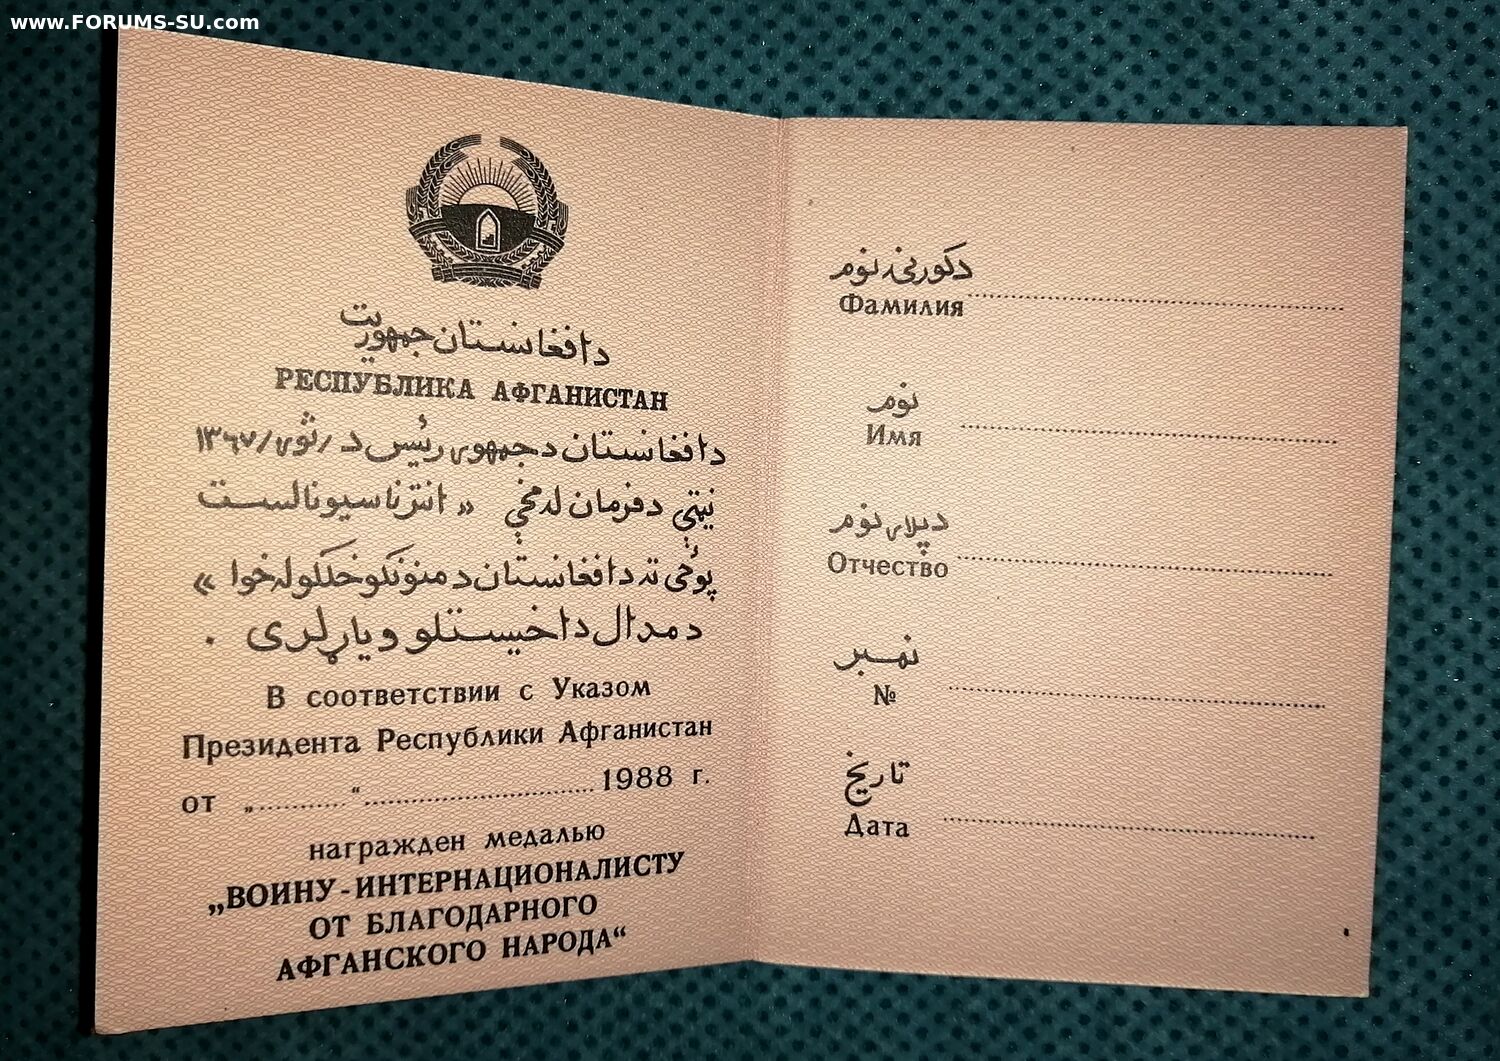 www.FORUMS-SU.com
دافغانستان جمهوریت
РЕСПУБЛИКА АФГАНИСТАН
دافغانستان دجمهوری رئیس د / ثوی / ۱۳۶۷
نیټې دفرمان له مخې « انترناسیونالست
پوځی ته دافغانستان د منونکو خلکو له خوا »
د مدال داخیستلو ویاړ لری .
В соответствии с Указом
Президента Республики Афганистан
от „............“.................................1988 г.
награжден медалью
„ВОИНУ-ИНТЕРНАЦИОНАЛИСТУ
ОТ БЛАГОДАРНОГО
АФГАНСКОГО НАРОДА“
دکورنی نوم
Фамилия
نوم
Имя
دپلار نوم
Отчество
نمبر
№
تاریخ
Дата